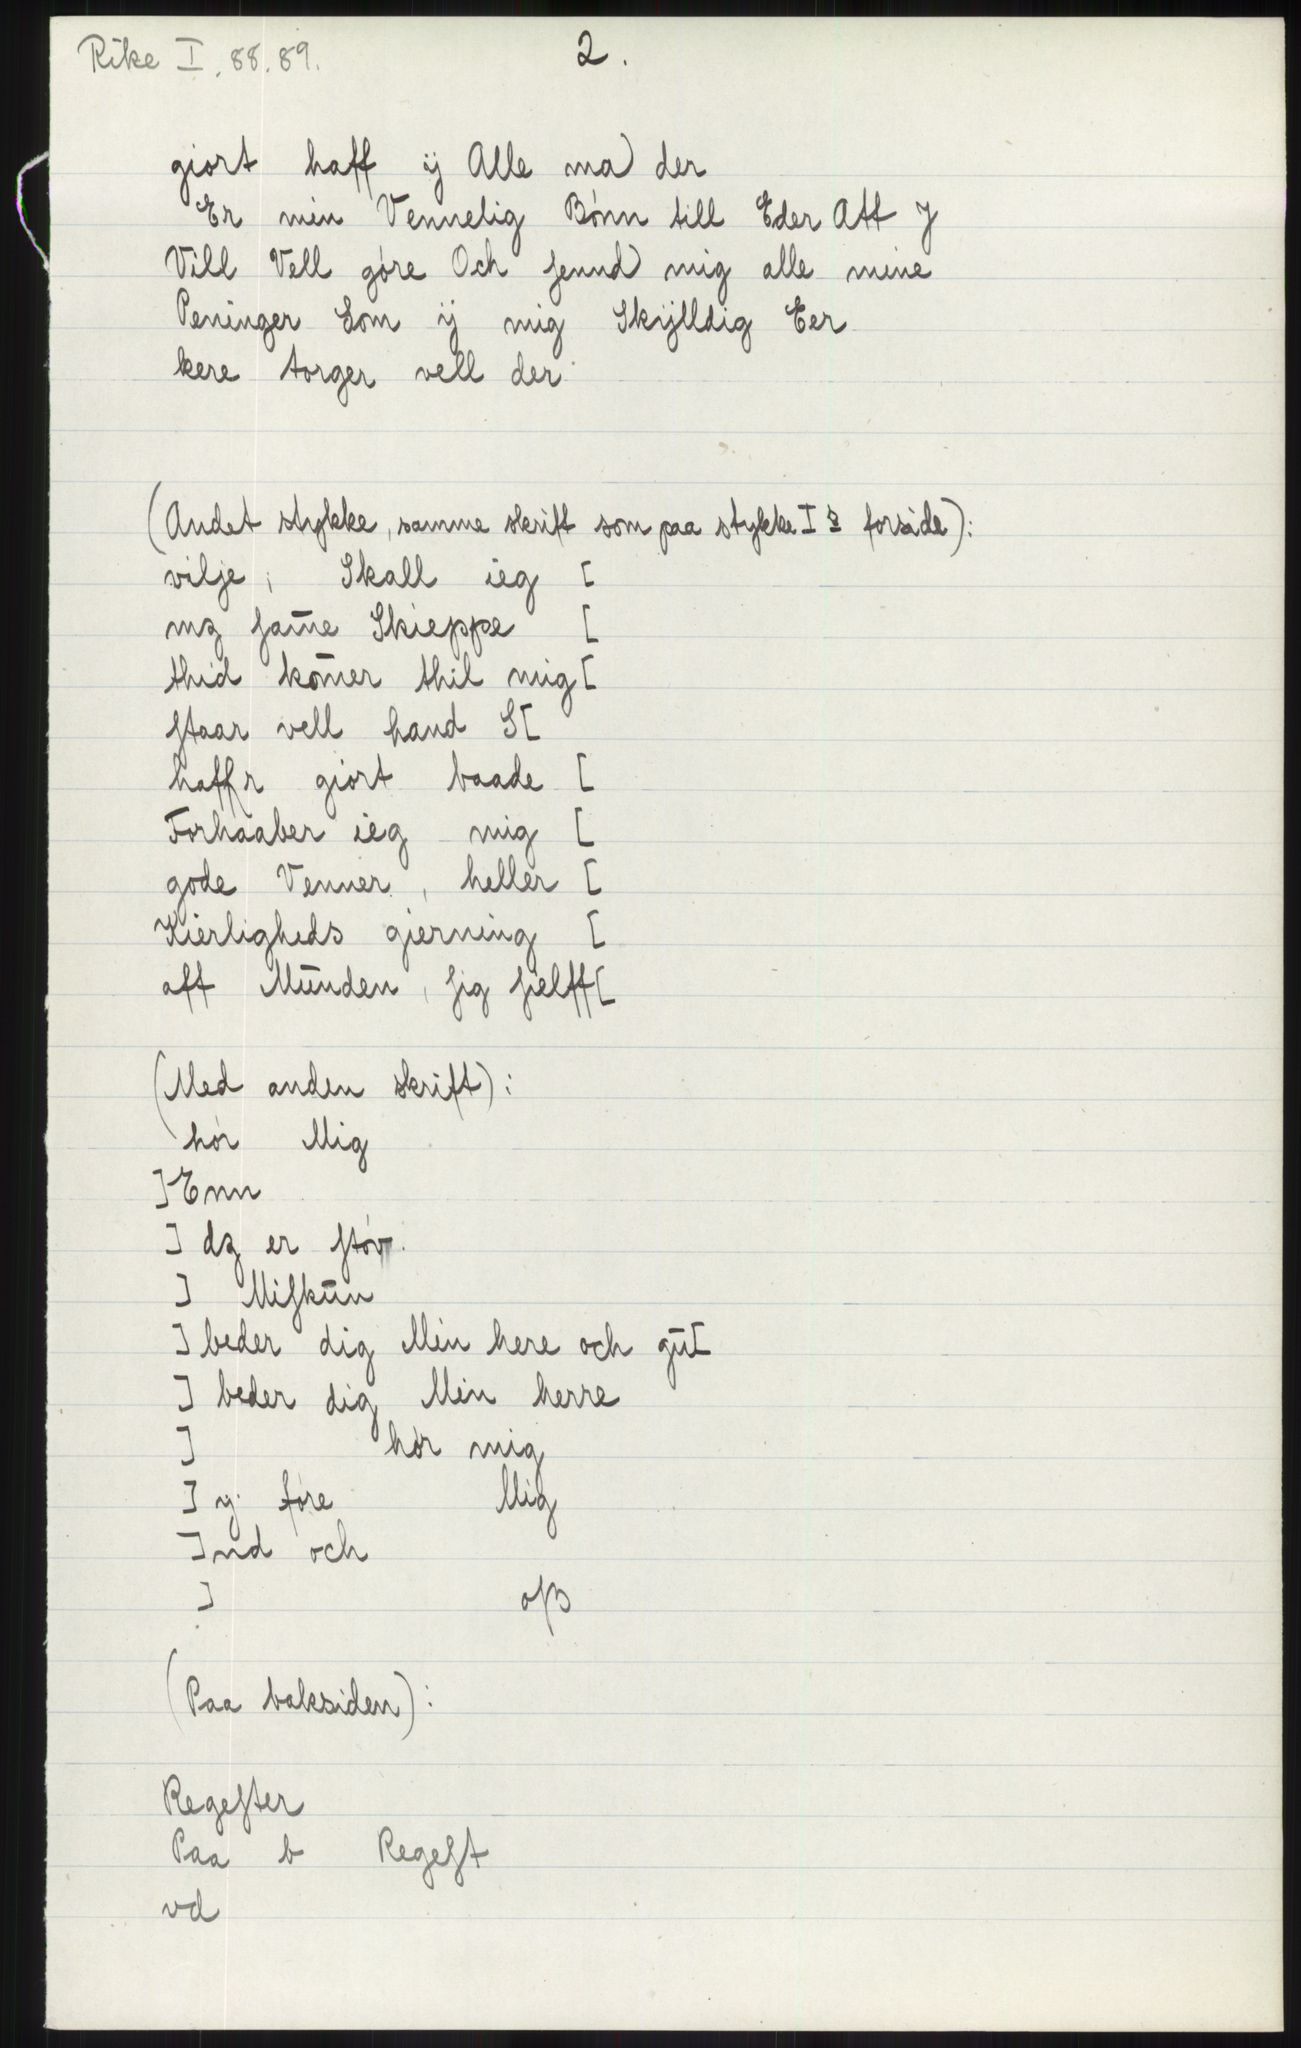 Rike I. 88. 89.
2.
giort haff ÿ Alle ma) der
Er min Vennelig Bónn till Eder Att J
Vill Vell góre Och ſennd) mig alle mine
Peninger Som ÿ mig Skÿlldig Eer
kere torger vell der
(Andet stykke, samme skrift som paa stykke I s forside):
vilje, Skall ieg [
mꝫ ſam̄e Skieppe [
thid kom̄er thil mig [
ſtaar vell hand S[
haffr giort baade [
Forhaaber ieg mig [
gode Venner, heller [
Kierligheds gierning [
aff Munden, ſig ſielff[
(Med anden skrift):
hór Mig
] Enn
] dꝫ er ſtóv
] Miſkūn
] beder dig Min here och gū[
] beder dig Min herre
] hór mig
] y fóre Mig
]nd och
] oſs
(Paa baksiden):
Regeſter
Paa b Regeſt
vd